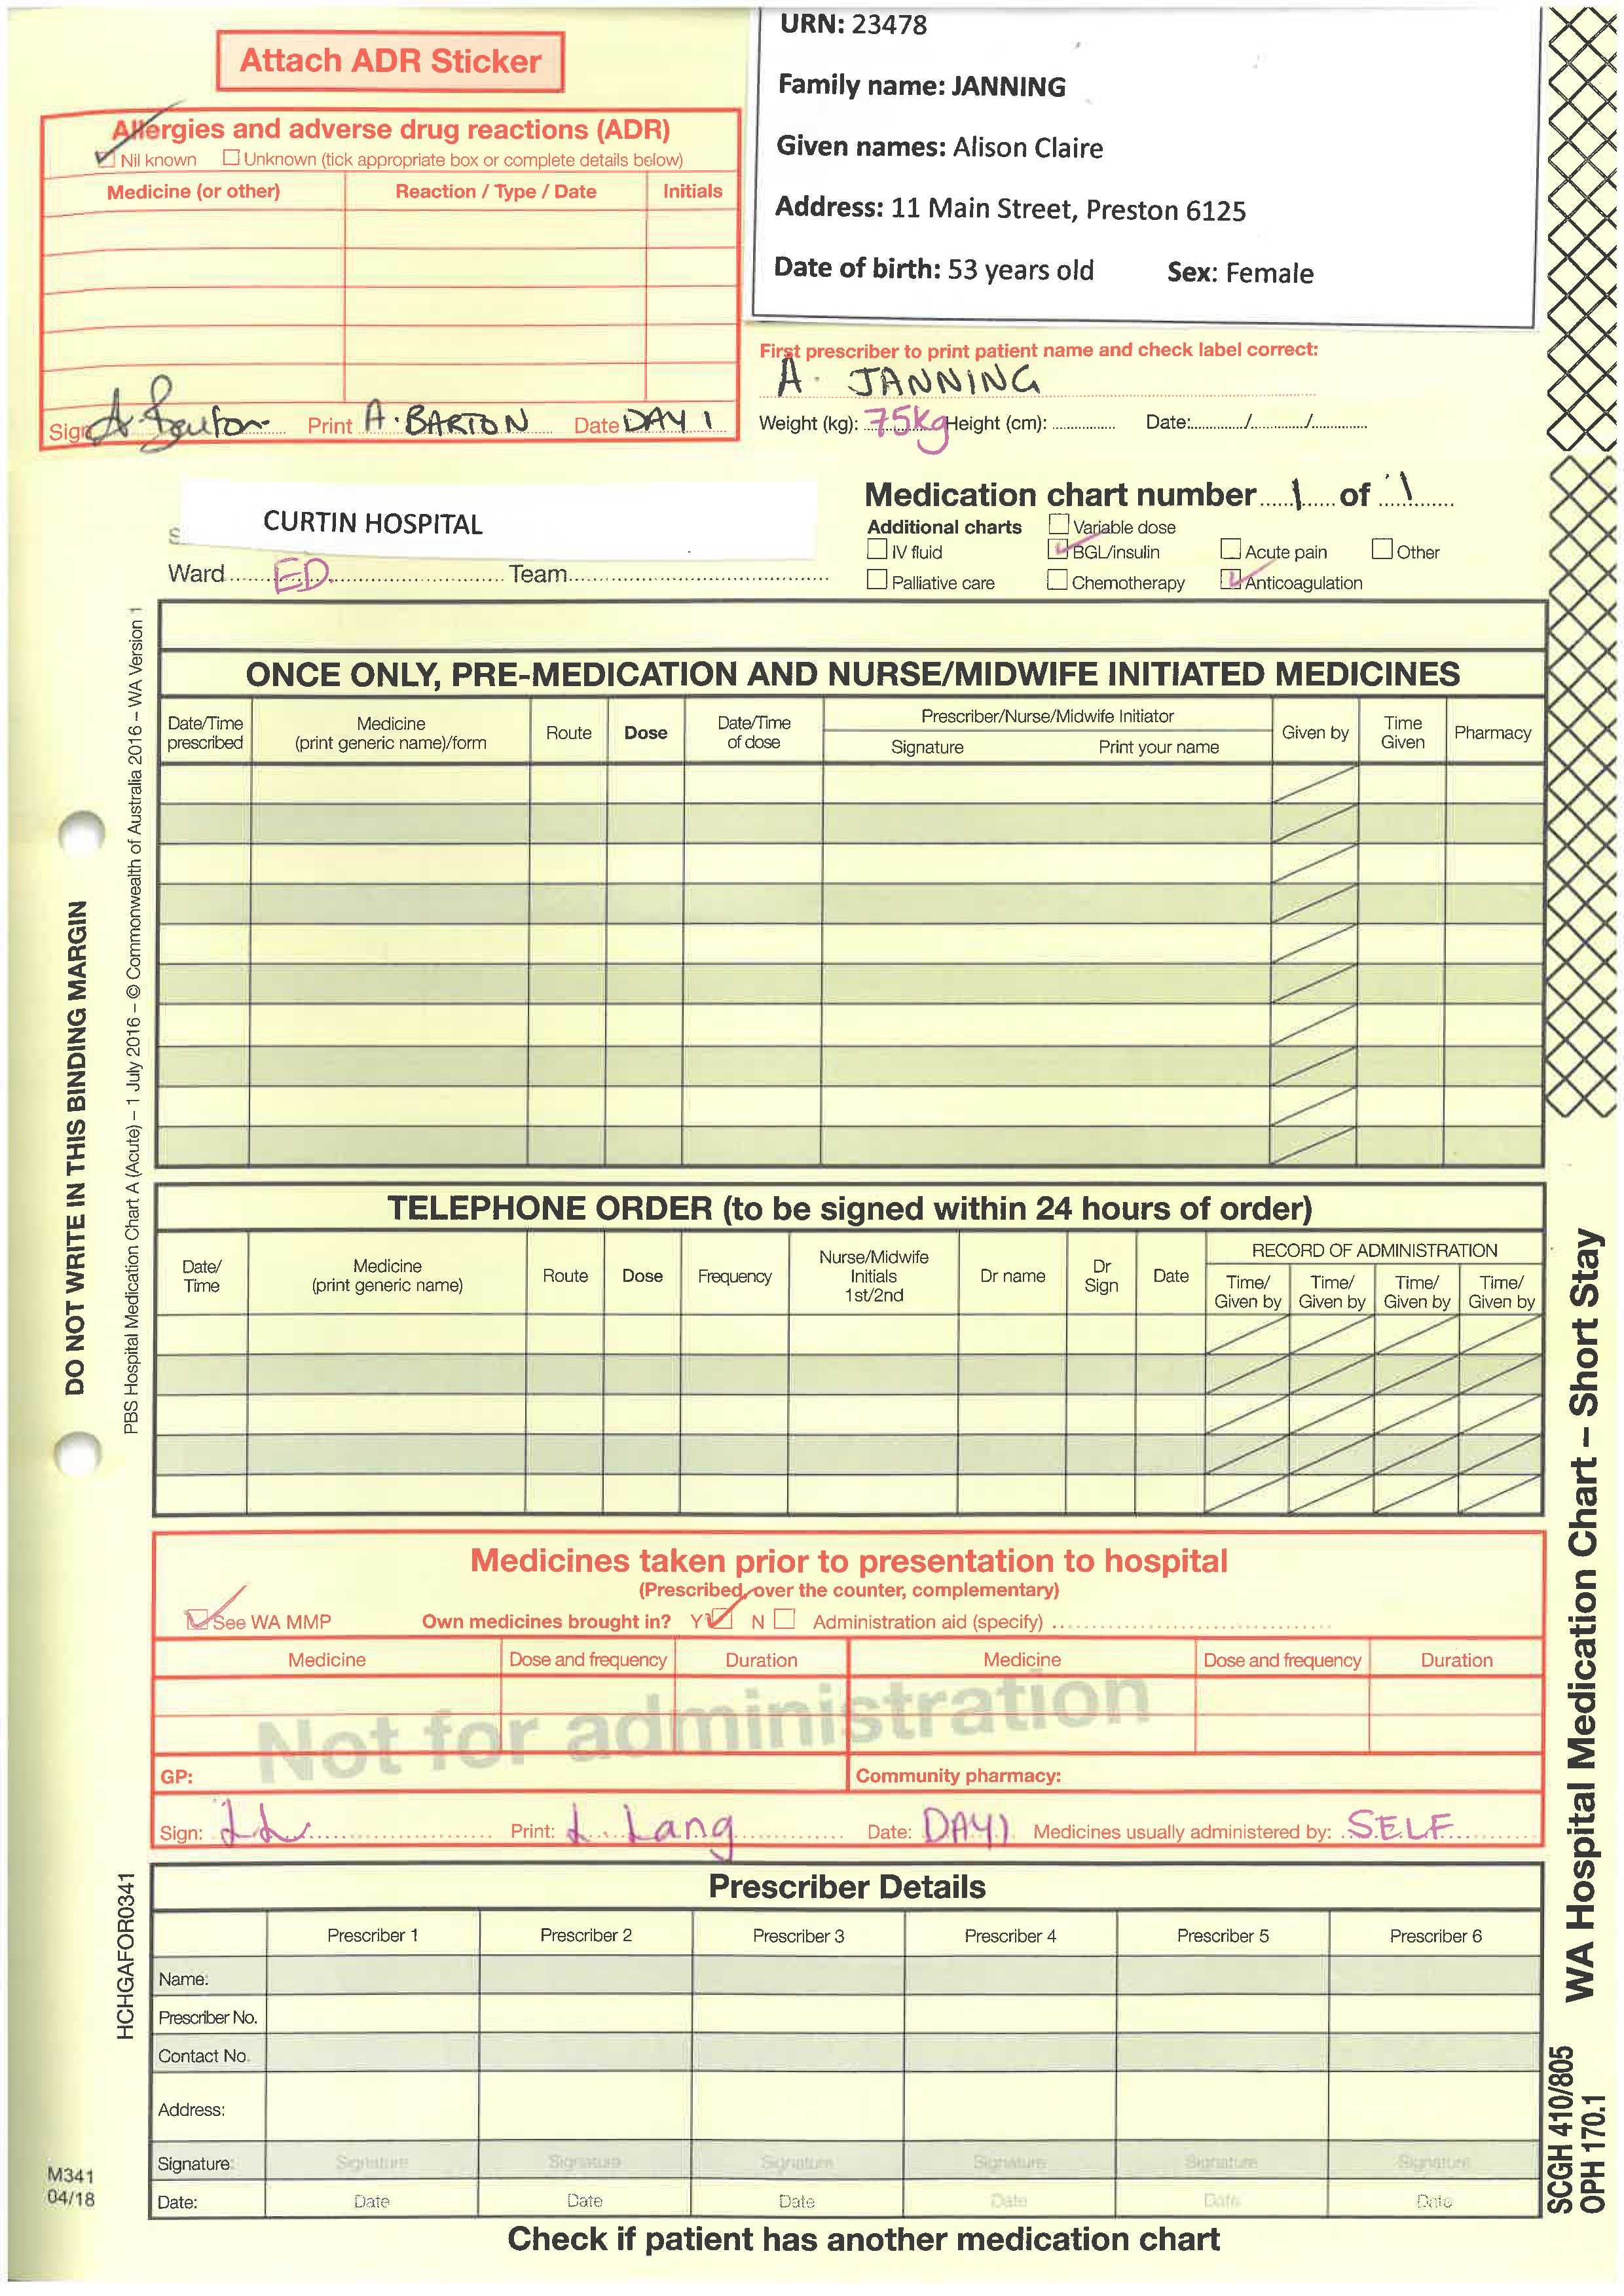 Attach ADR Sticker
Allergies and adverse drug reactions (ADR)
Nil known Unknown (tick appropriate box or complete details below)
Medicine (or other) Reaction / Type / Date Initials
Sign A. Barton Print A. BARTON Date DAY 1
URN: 23478
Family name: JANNING
Given names: Alison Claire
Address: 11 Main Street, Preston 6125
Date of birth: 53 years old Sex: Female
First prescriber to print patient name and check label correct:
A. JANNING
Weight (kg): 75kg Height (cm): Date: / /
CURTIN HOSPITAL
Ward ED Team
Medication chart number 1 of 1
Additional charts Variable dose
IV fluid BGL/insulin Acute pain Other
Palliative care Chemotherapy Anticoagulation
ONCE ONLY, PRE-MEDICATION AND NURSE/MIDWIFE INITIATED MEDICINES
Date/Time prescribed Medicine (print generic name)/form Route Dose Date/Time of dose Prescriber/Nurse/Midwife Initiator Signature Print your name Given by Time Given Pharmacy
TELEPHONE ORDER (to be signed within 24 hours of order)
Date/ Time Medicine (print generic name) Route Dose Frequency Nurse/Midwife Initials 1st/2nd Dr name Dr Sign Date RECORD OF ADMINISTRATION
Time/ Given by Time/ Given by Time/ Given by Time/ Given by
Medicines taken prior to presentation to hospital
(Prescribed, over the counter, complementary)
See WA MMP Own medicines brought in? Y N Administration aid (specify)
Medicine Dose and frequency Duration Medicine Dose and frequency Duration
Not for administration
GP: Community pharmacy:
Sign: LL Print: L. Lang Date: DAY 1 Medicines usually administered by: SELF
Prescriber Details
Prescriber 1 Prescriber 2 Prescriber 3 Prescriber 4 Prescriber 5 Prescriber 6
Name:
Prescriber No.
Contact No.
Address:
Signature: Signature Signature Signature Signature Signature Signature
Date: Date Date Date Date Date Date
Check if patient has another medication chart
DO NOT WRITE IN THIS BINDING MARGIN
PBS Hospital Medication Chart A (Acute) – 1 July 2016 – © Commonwealth of Australia 2016 – WA Version 1
HCHGAFOR0341
M341
04/18
WA Hospital Medication Chart – Short Stay
SCGH 410/805
OPH 170.1